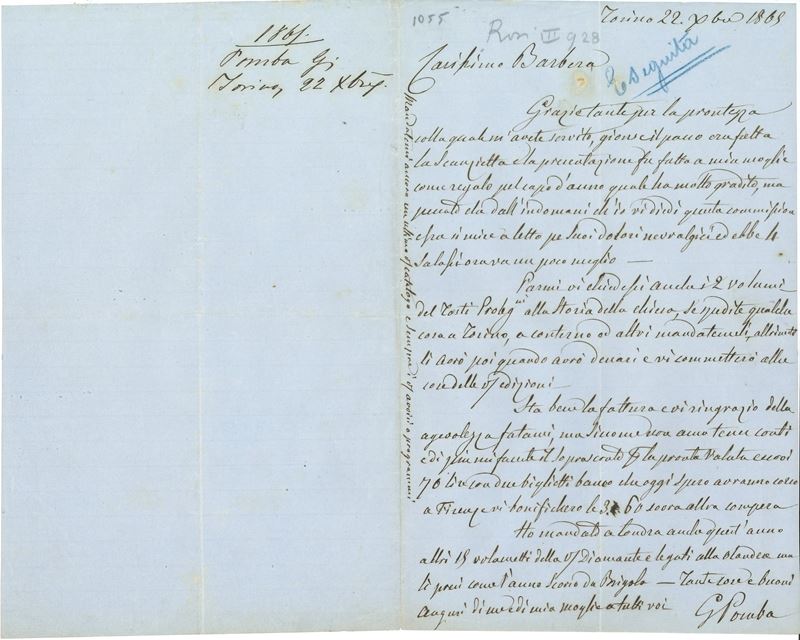 1865.
Pomba Gi
Torino, 22 Xbre.
1055
Rosi III 928
Torino 22. Xbre 1865
Eseguita
Carissimo Barbera
Grazie tante per la prontezza
colla quale mi avete servito, giunse il pacco era fatta
la Scanzietta e la presentazione fu fatta a mia moglie
come regalo pel capo d'anno quale ha molto gradito, ma
dall'indomani ch'io vi diedi questa commissione
essa si mise a letto pe' suoi dolori nevralgici ed ebbe 4
salassi ora va un poco meglio —
Parmi vi chiedessi anche i 2 volumi
del Tosti Proleg.ni alla Storia della chiesa, se spedite qualche
cosa a Torino, a conterno od altri mandatemeli, altrimenti
li avrò poi quando avrò denari e vi commetterò altre
cose delle vs edizioni —
Sta bene la fattura e vi ringrazio della
agevolezza fatami, ma siccome non amo tener conti
e di più mi faceste il soprasconto p la pronta valuta eccovi
70 lire con due biglietti banco che oggi spero avranno corso
a Firenze vi bonificherò le 3. 60 sovra altra compera
Ho mandato a Londra anche quest'anno
altri 18 volumetti della vs Diamante e legati alla olandese ma
li presi come l'anno scorso da Brigola — Tante cose e buoni
auguri di me e di mia moglie a tutti voi GPomba
Mandatemi ancora un ultimo vs catalogo e sempre i vs avvisi o programmi